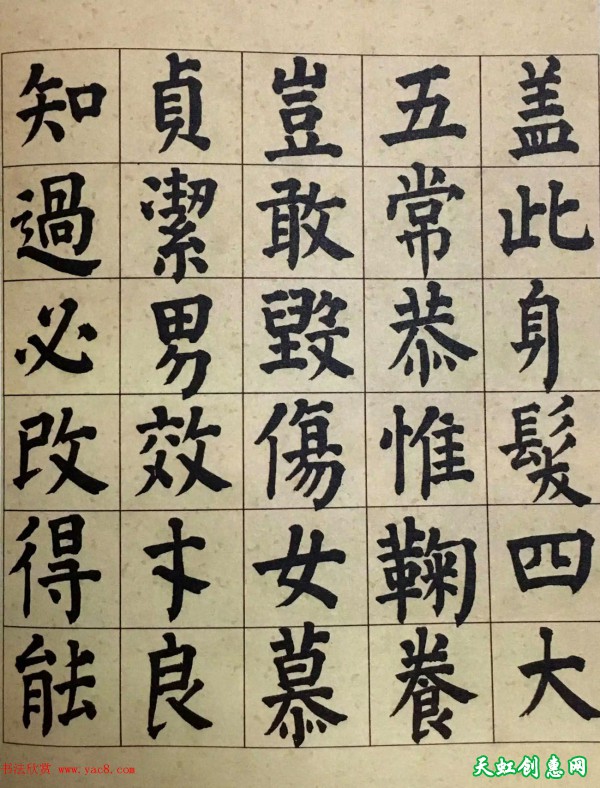 盖此身髮四大
五常恭惟鞠養
豈敢毀傷女慕
貞潔男效才良
知過必改得能
书法欣赏 www.yac8.com
天虹创惠网